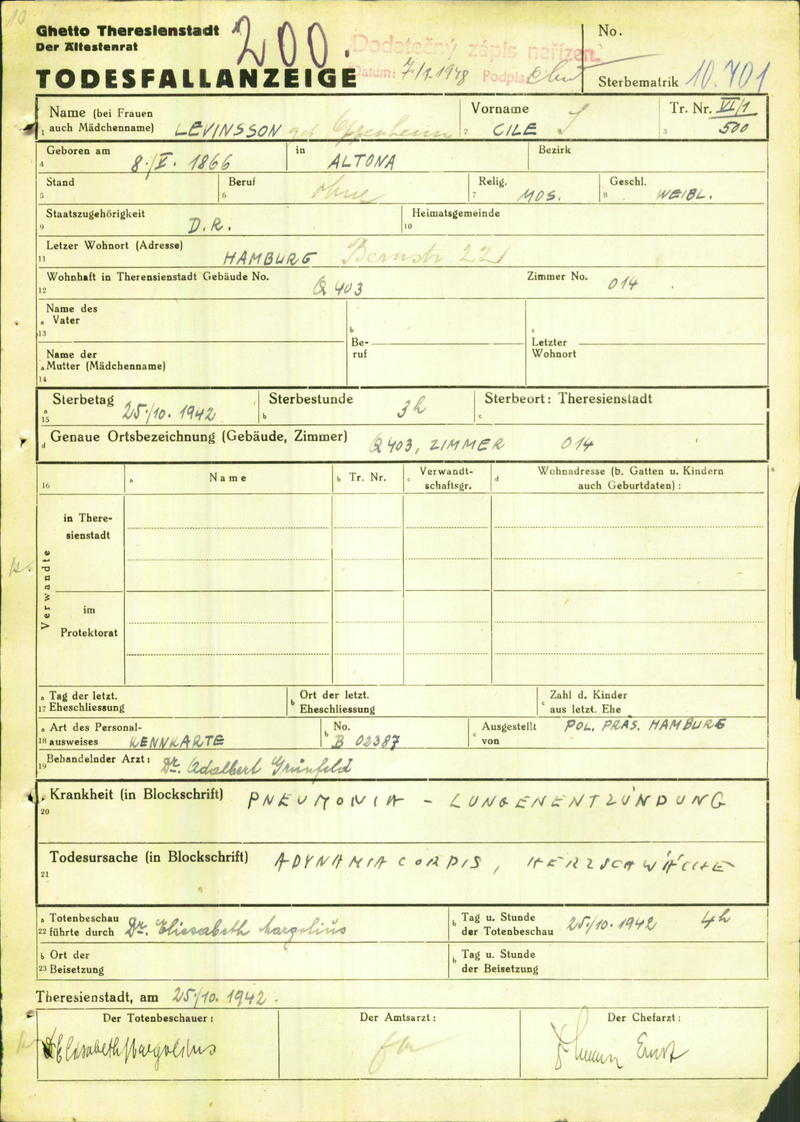 10
Ghetto Theresienstadt
Der Ältestenrat
TODESFALLANZEIGE
200.
Dodatečný zápis nařízen.
Datum: 7/1.1948 Podpis:
No.
Sterbematrik 10.701
Name (bei Frauen
1 auch Mädchenname) LEVINSSON geb.
Vorname
2 CILE S
Tr. Nr. VI/1
3 500
Geboren am
4 8./V. 1866
in ALTONA
Bezirk
Stand
5
Beruf
6 ohne
Relig.
7 MOS.
Geschl.
8 WEIBL.
Staatszugehörigkeit
9 D.R.
Heimatsgemeinde
10
Letzer Wohnort (Adresse)
11 HAMBURG Bernstr. 22
Wohnhaft in Therensienstadt Gebäude No.
12 Q 403
Zimmer No. 014
Name des
a Vater
13
b
Be-
ruf
c
Letzter
Wohnort
Name der
a Mutter (Mädchenname)
14
Sterbetag
a
15 25./10. 1942
Sterbestunde
b 3h
Sterbeort: Theresienstadt
c
d Genaue Ortsbezeichnung (Gebäude, Zimmer) Q 403, ZIMMER 014
16
a Name
b Tr. Nr.
c Verwandt-
schaftsgr.
d Wohnadresse (b. Gatten u. Kindern
auch Geburtdaten):
Verwandte
in There-
sienstadt
im
Protektorat
a Tag der letzt.
17 Eheschliessung
b Ort der letzt.
Eheschliessung
c Zahl d. Kinder
aus letzt. Ehe
a Art des Personal-
18 ausweises KENNKARTE
b No.
B 02387
c Ausgestellt
von POL. PRÄS. HAMBURG
19 Behandelnder Arzt: Dr. Adalbert Grünfeld
Krankheit (in Blockschrift) PNEUMONIA - LUNGENENTZÜNDUNG
20
Todesursache (in Blockschrift) ADYNAMIA CORDIS, HERZSCHWÄCHE
21
a Totenbeschau
22 führte durch Dr. Elisabeth Margolius
b Tag u. Stunde
der Totenbeschau 25./10. 1942 4h
b Ort der
23 Beisetzung
b Tag u. Stunde
der Beisetzung
Theresienstadt, am 25./10. 1942.
Der Totenbeschauer:
Dr Elisabeth Margolius
Der Amtsarzt:
Der Chefarzt: